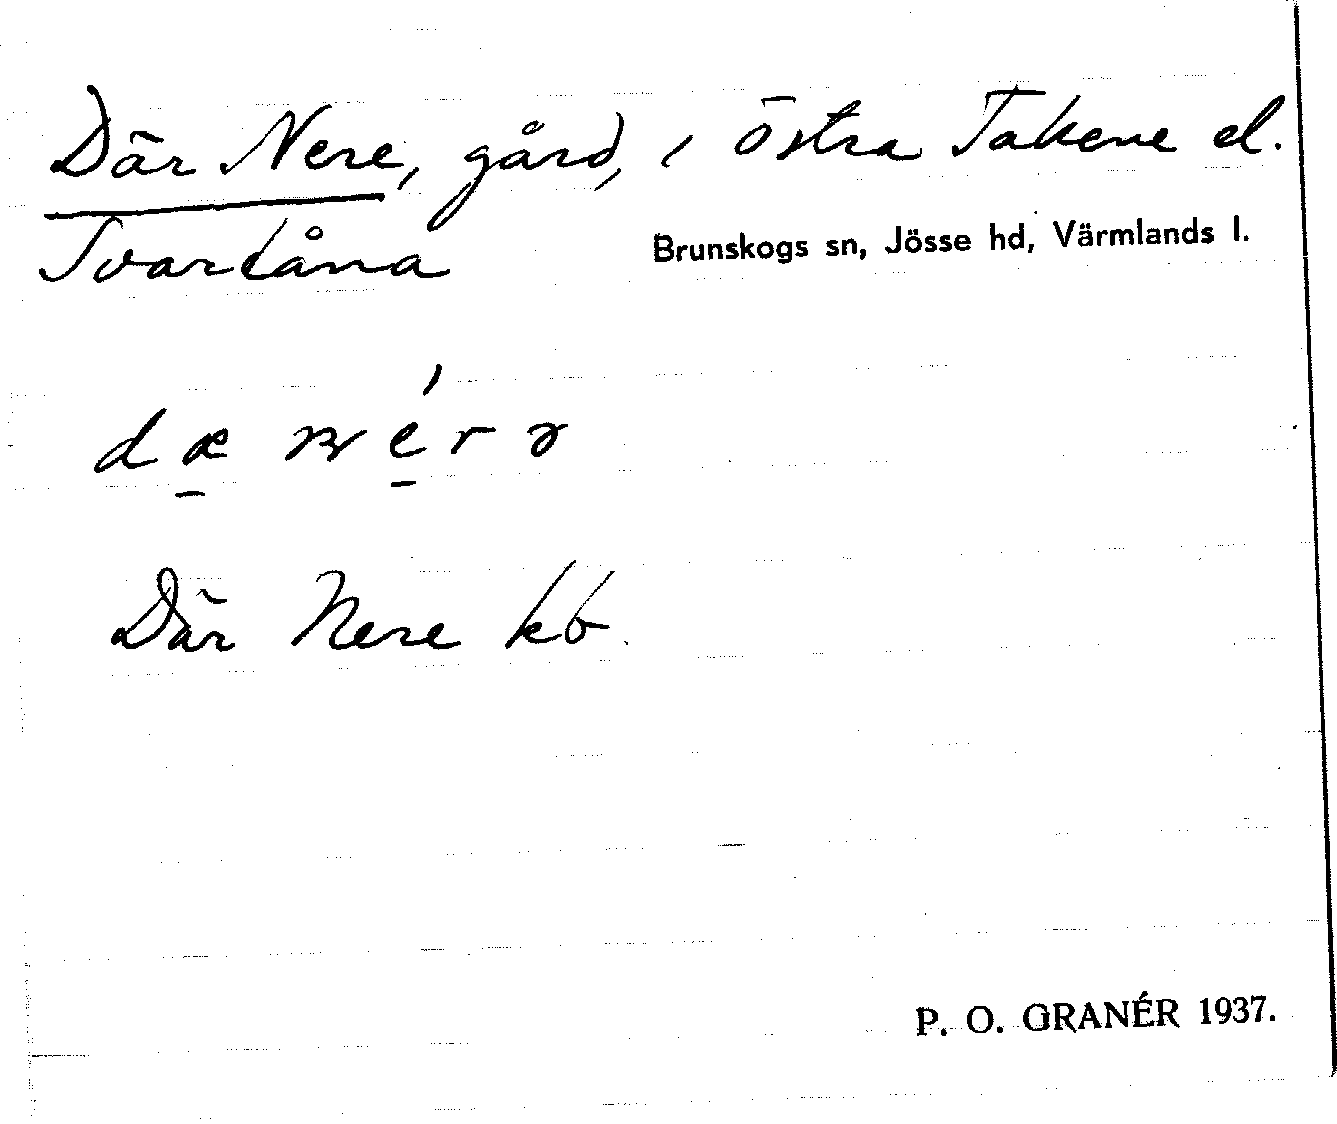 Där Nere, gård, i Östra Takene el.
Tvartåna
Brunskogs sn, Jösse hd, Värmlands l.
dæ néra
Där Nere kb.
P. O. GRANÉR 1937.